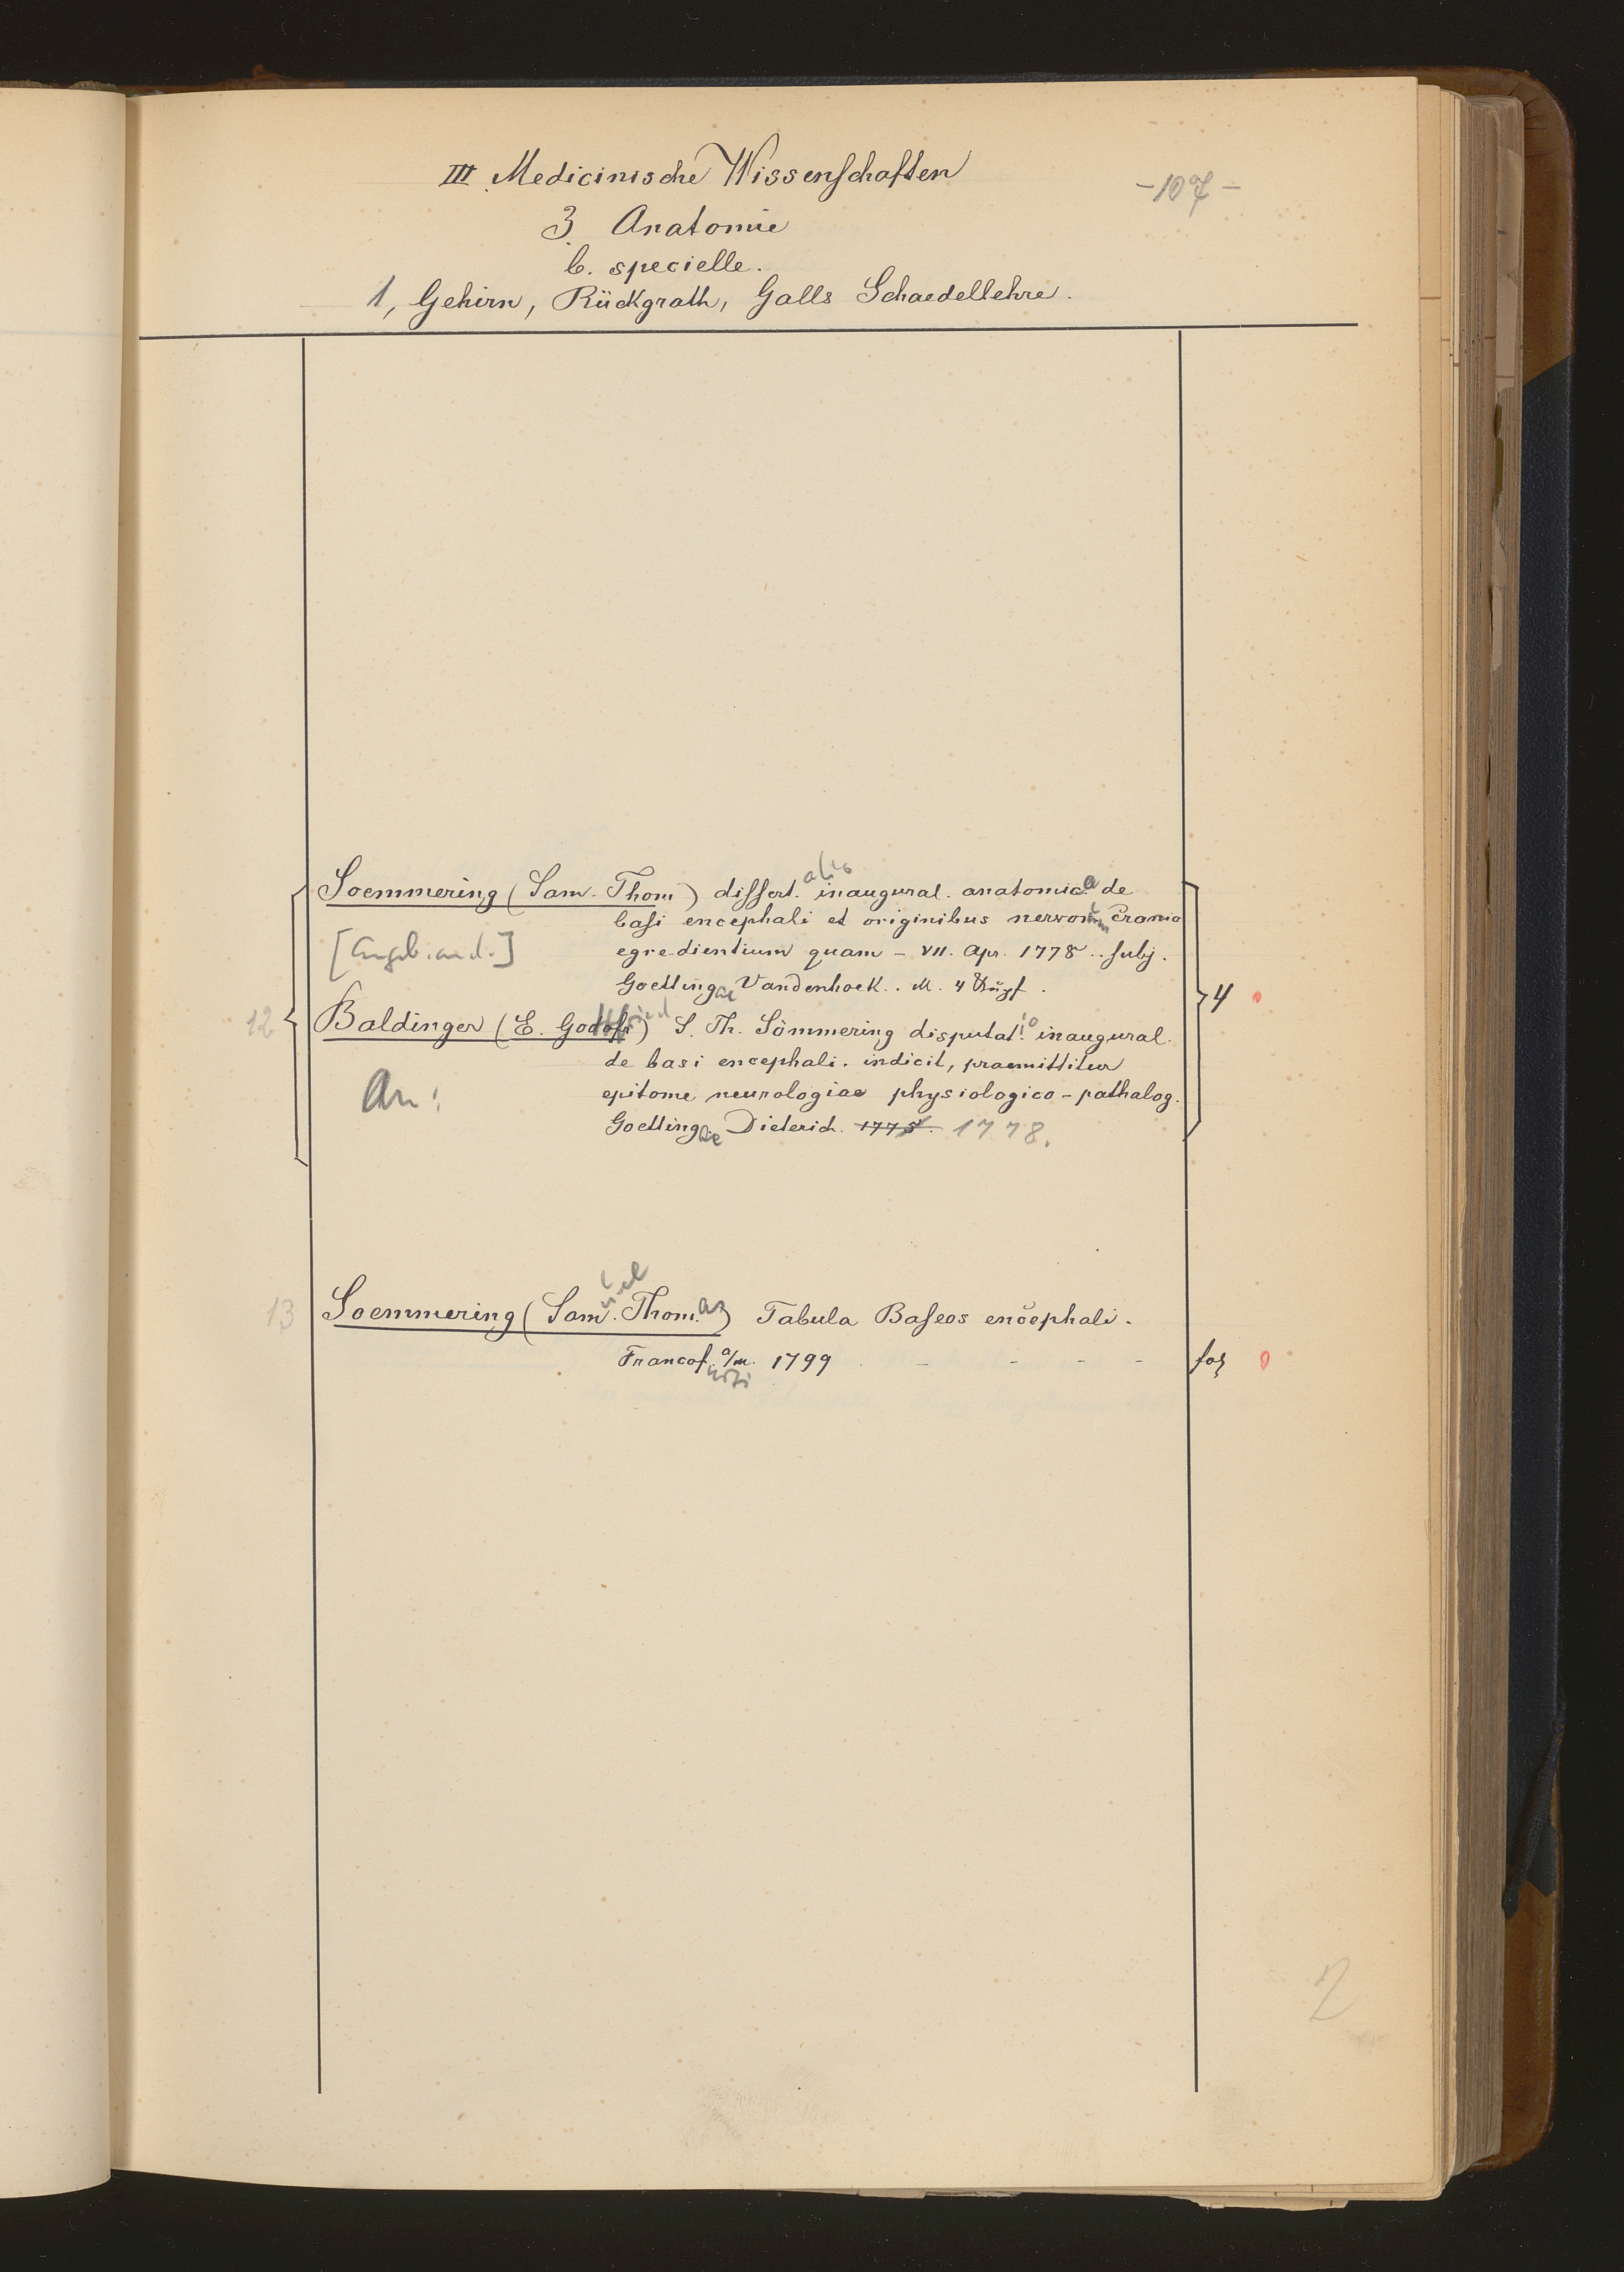 III Medicinische Wissenschaften
-107-
3. Anatomie
b. specielle.
1, Gehirn, Rückgrath, Galls Schaedellehre.
Soemmering (Sam. Thom) dissert. inaugural. anatomica de
basi encephali et originibus nervorum cranio
egredientium quam - VII. Apr. 1778 .. subj.
[Angeb. and.]
Goettingae Vandenhoek. . M. 4 Kupf.
12
4
Baldinger (E. Godofr) S. Th. Sömmering disputatio inaugural.
de basi encephali. indicit, praemittitur
An:
epitome neurologiae physiologico-pathalog.
Goettingae Dieterich. 1775. 1778.
13
Soemmering (Samuel. Thomas) Tabula Baseos encephali.
Francof. a/m. 1799 - - - -
fol
2